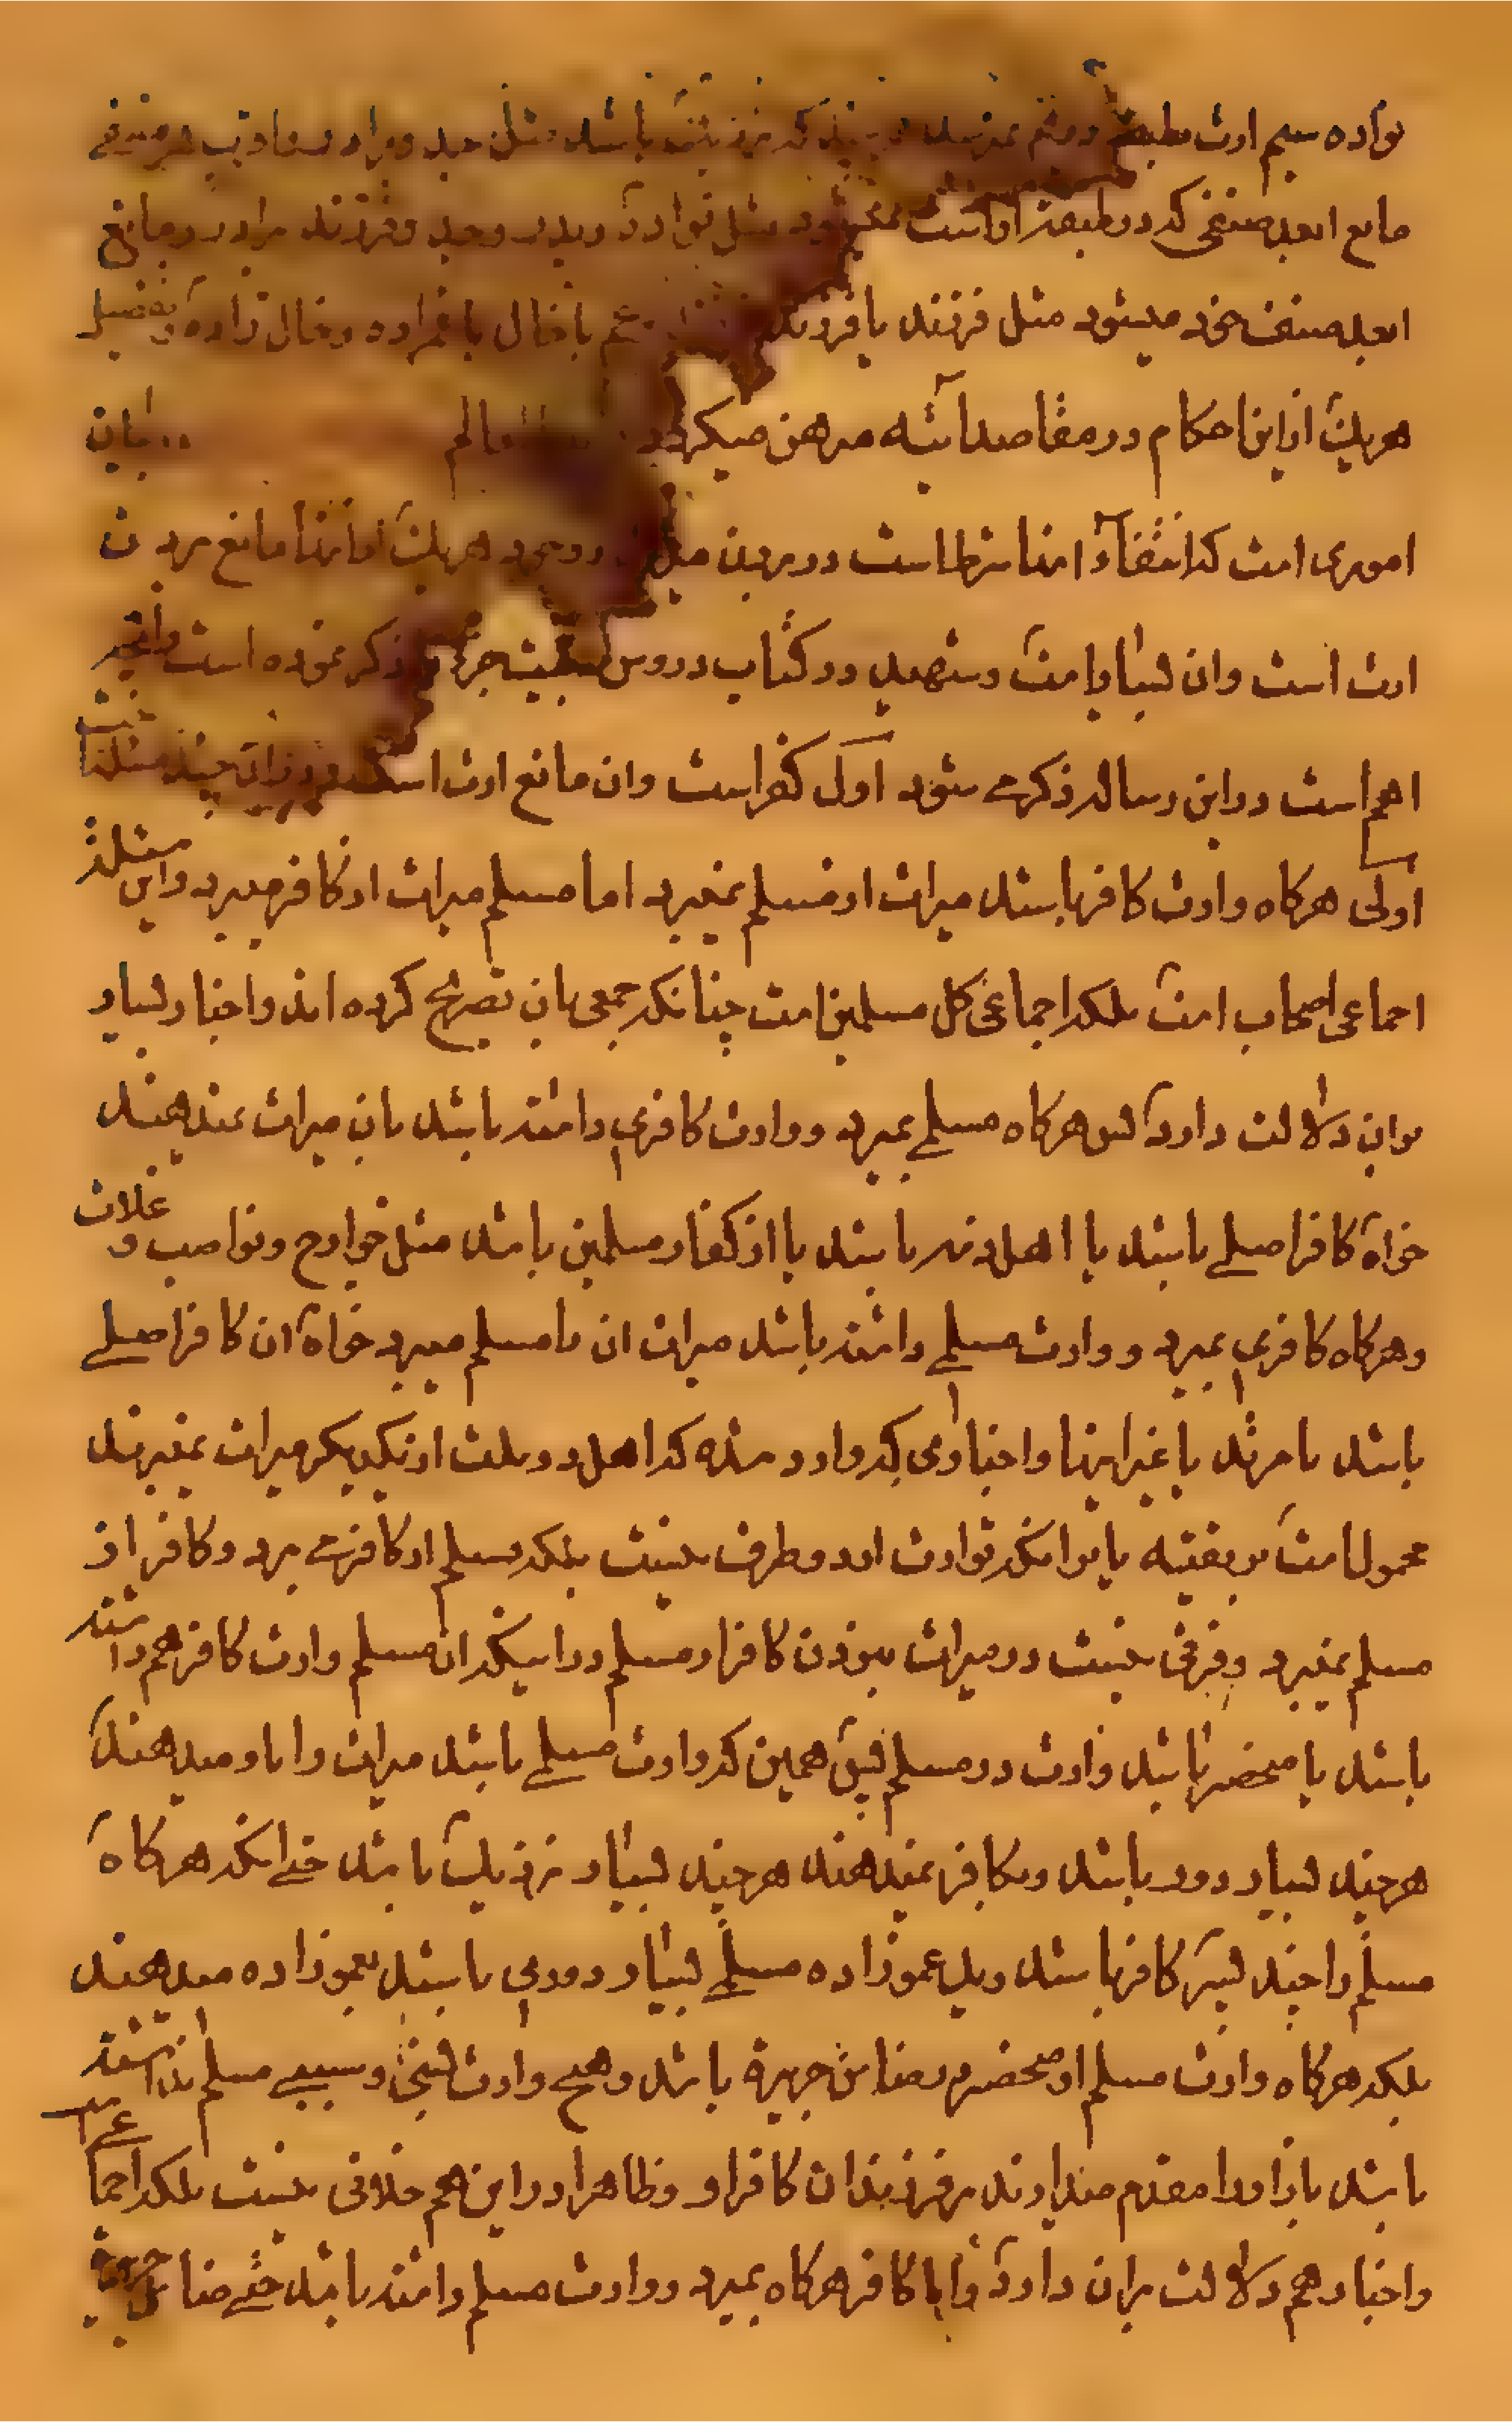 نواده سیم ارث طبقه دویم باشد مثل جد و برادر
مانع ابعد صنفی که در طبقه اواست نمیشود مثل نواده و پدر و جد و فرزند برادر و مانع
ابعد صنف خود میشود مثل فرزند با فرزند عم با خال با عمزاده و خال زاده و تفصیل
هریک از این احکام در مقاصد آتیه مبرهن میگردد بیان
اموری است که انتفاء آنها شرط است در بردن میراث و وجود هریک از آنها مانع بردن
ارث است و آن بسیار است و شهید در کتاب دروس بیست چیز ذکر نموده است و آنچه
اهم است در این رساله ذکر می شود اول کفر است و آن مانع ارث است و در آن چند مسئله است
اولی هرگاه وارث کافر باشد میراث از مسلم نمیبرد اما مسلم میراث از کافر میبرد و این مسئله
اجماعی اصحاب است بلکه اجماعی کل مسلمین است چنانکه جمعی بان تصریح کرده اند و اخبار بسیار
بران دلالت دارد پس هرگاه مسلمی بمیرد و وارث کافری داشته باشد بان میراث نمیدهند
خواه کافر اصلی باشد یا اهل ذمه باشد یا از کفار مسلمین باشد مثل خوارج و نواصب و غلات
و هرگاه کافری بمیرد و وارث مسلمی داشته باشد میراث ان با مسلم میبرد خواه ان کافر اصلی
باشد یا مرتد یا غیر اینها و اخباری که وارد شده که اهل دو ملت از یکدیگر میراث نمیبرند
محمول است بر تقیه یا بر انکه توارث از دو طرف نیست بلکه مسلم از کافر می برد و کافر از
مسلم نمیبرد و فرقی نیست در میراث نبردن کافر از مسلم در اینکه ان مسلم وارث کافر هم داشته
باشد یا منحصر باشد وارث در مسلم پس همین که وارث مسلمی باشد میراث را باو میدهند
هرچند بسیار دور باشد و بکافر نمیدهند هرچند بسیار نزدیک باشد حتی انکه هرگاه
مسلم را چند پسر کافر باشد و یک عموزاده مسلم بسیار دوری باشد بعموزاده میدهند
بلکه هرگاه وارث مسلم او منحصر بضامن جریره باشد و هیچ وارث نسبی و سببی مسلم نداشته
باشد باز او را مقدم میدارند بر فرزندان کافر او و ظاهرا در این هم خلافی نیست بلکه اجماعی است
و اخبار هم دلالت بران دارد و اما کافر هرگاه بمیرد و وارث مسلم داشته باشد حتی ضامن جریره